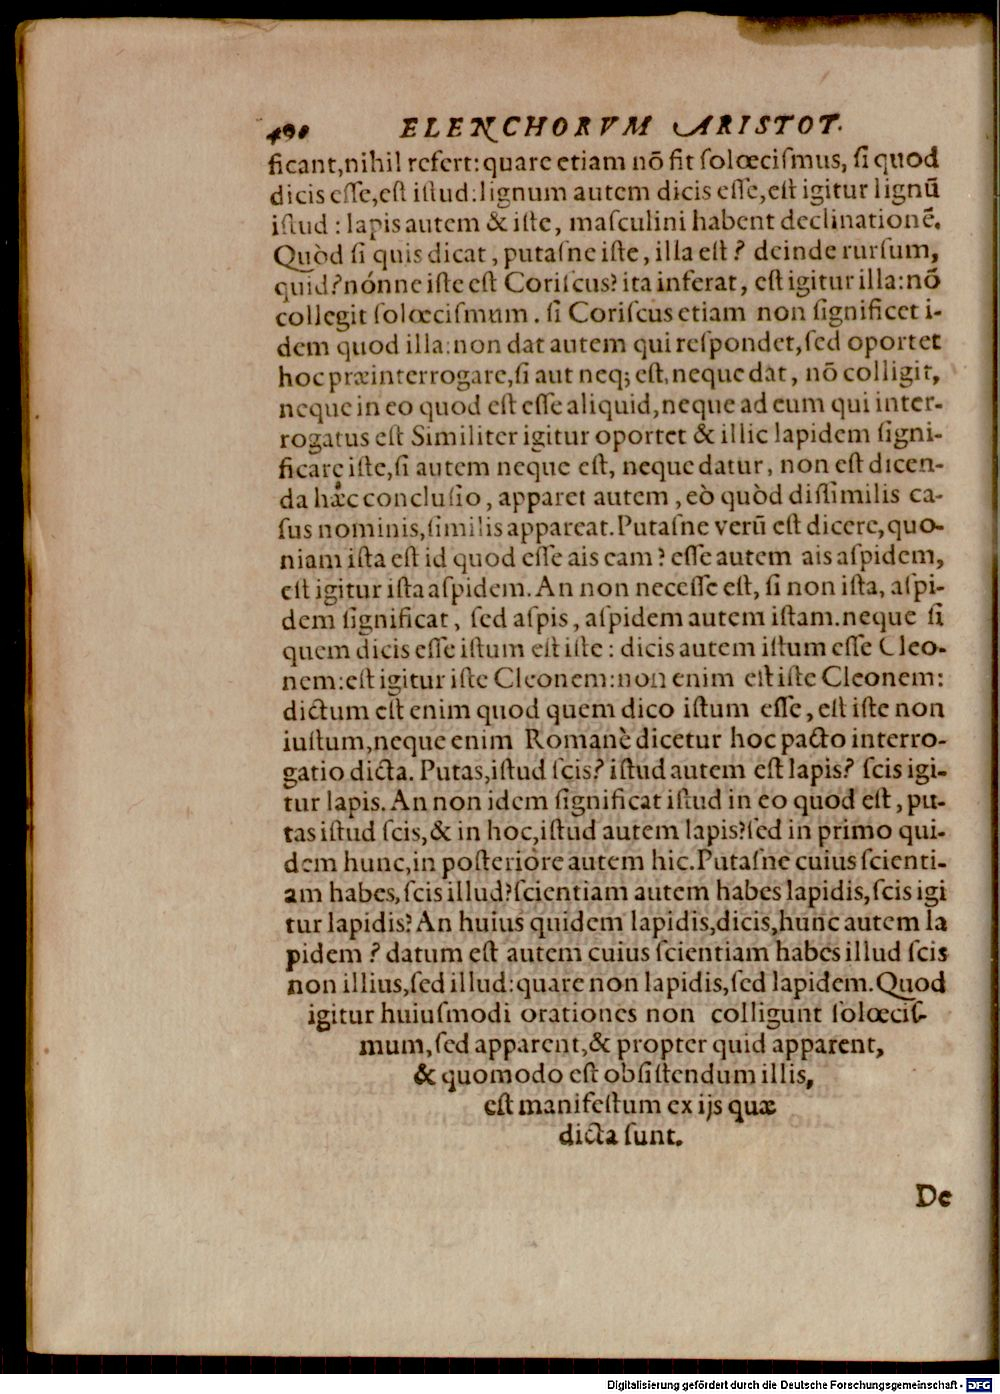 498 ELENCHORVM ARISTOT.
ficant,nihil refert:quare etiam nō fit ſolœciſmus, ſi quod
dicis eſſe,eſt iſtud:lignum autem dicis eſſe,eſt igitur lignū
iſtud : lapis autem & iſte, maſculini habent declinationē.
Quòd ſi quis dicat, putaſne iſte, illa eſt? deinde rurſum,
quid?nónne iſte eſt Coriſcus? ita inferat, eſt igitur illa:nō
collegit ſolœciſmum. ſi Coriſcus etiam non ſignificet i-
dem quod illa:non dat autem qui reſpondet,ſed oportet
hoc præinterrogare,ſi aut neq; eſt,neque dat, nō colligit,
neque in eo quod eſt eſſe aliquid,neque ad eum qui inter-
rogatus eſt Similiter igitur oportet & illic lapidem ſigni-
ficare iſte,ſi autem neque eſt, neque datur, non eſt dicen-
da hæc concluſio, apparet autem, eò quòd diſſimilis ca-
ſus nominis,ſimilis appareat.Putaſne verū eſt dicere,quo-
niam iſta eſt id quod eſſe ais eam? eſſe autem ais aſpidem,
eſt igitur iſta aſpidem.An non neceſſe eſt, ſi non iſta, aſpi-
dem ſignificat, ſed aſpis, aſpidem autem iſtam.neque ſi
quem dicis eſſe iſtum eſt iſte: dicis autem iſtum eſſe Cleo-
nem:eſt igitur iſte Cleonem:non enim eſt iſte Cleonem:
dictum eſt enim quod quem dico iſtum eſſe, eſt iſte non
iuſtum,neque enim Romanè dicetur hoc pacto interro-
gatio dicta. Putas,iſtud ſcis? iſtud autem eſt lapis? ſcis igi-
tur lapis. An non idem ſignificat iſtud in eo quod eſt, pu-
tas iſtud ſcis,& in hoc,iſtud autem lapis?ſed in primo qui-
dem hunc,in poſteriore autem hic.Putaſne cuius ſcienti-
am habes,ſcis illud?ſcientiam autem habes lapidis,ſcis igi
tur lapidis? An huius quidem lapidis,dicis,hunc autem la
pidem ? datum eſt autem cuius ſcientiam habes illud ſcis
non illius,ſed illud:quare non lapidis,ſed lapidem.Quod
igitur huiuſmodi orationes non colligunt ſolœciſ-
mum,ſed apparent,& propter quid apparent,
& quomodo eſt obſiſtendum illis,
eſt manifeſtum ex ijs quæ
dicta ſunt.
De
Digitalisierung gefördert durch die Deutsche Forschungsgemeinschaft - DFG